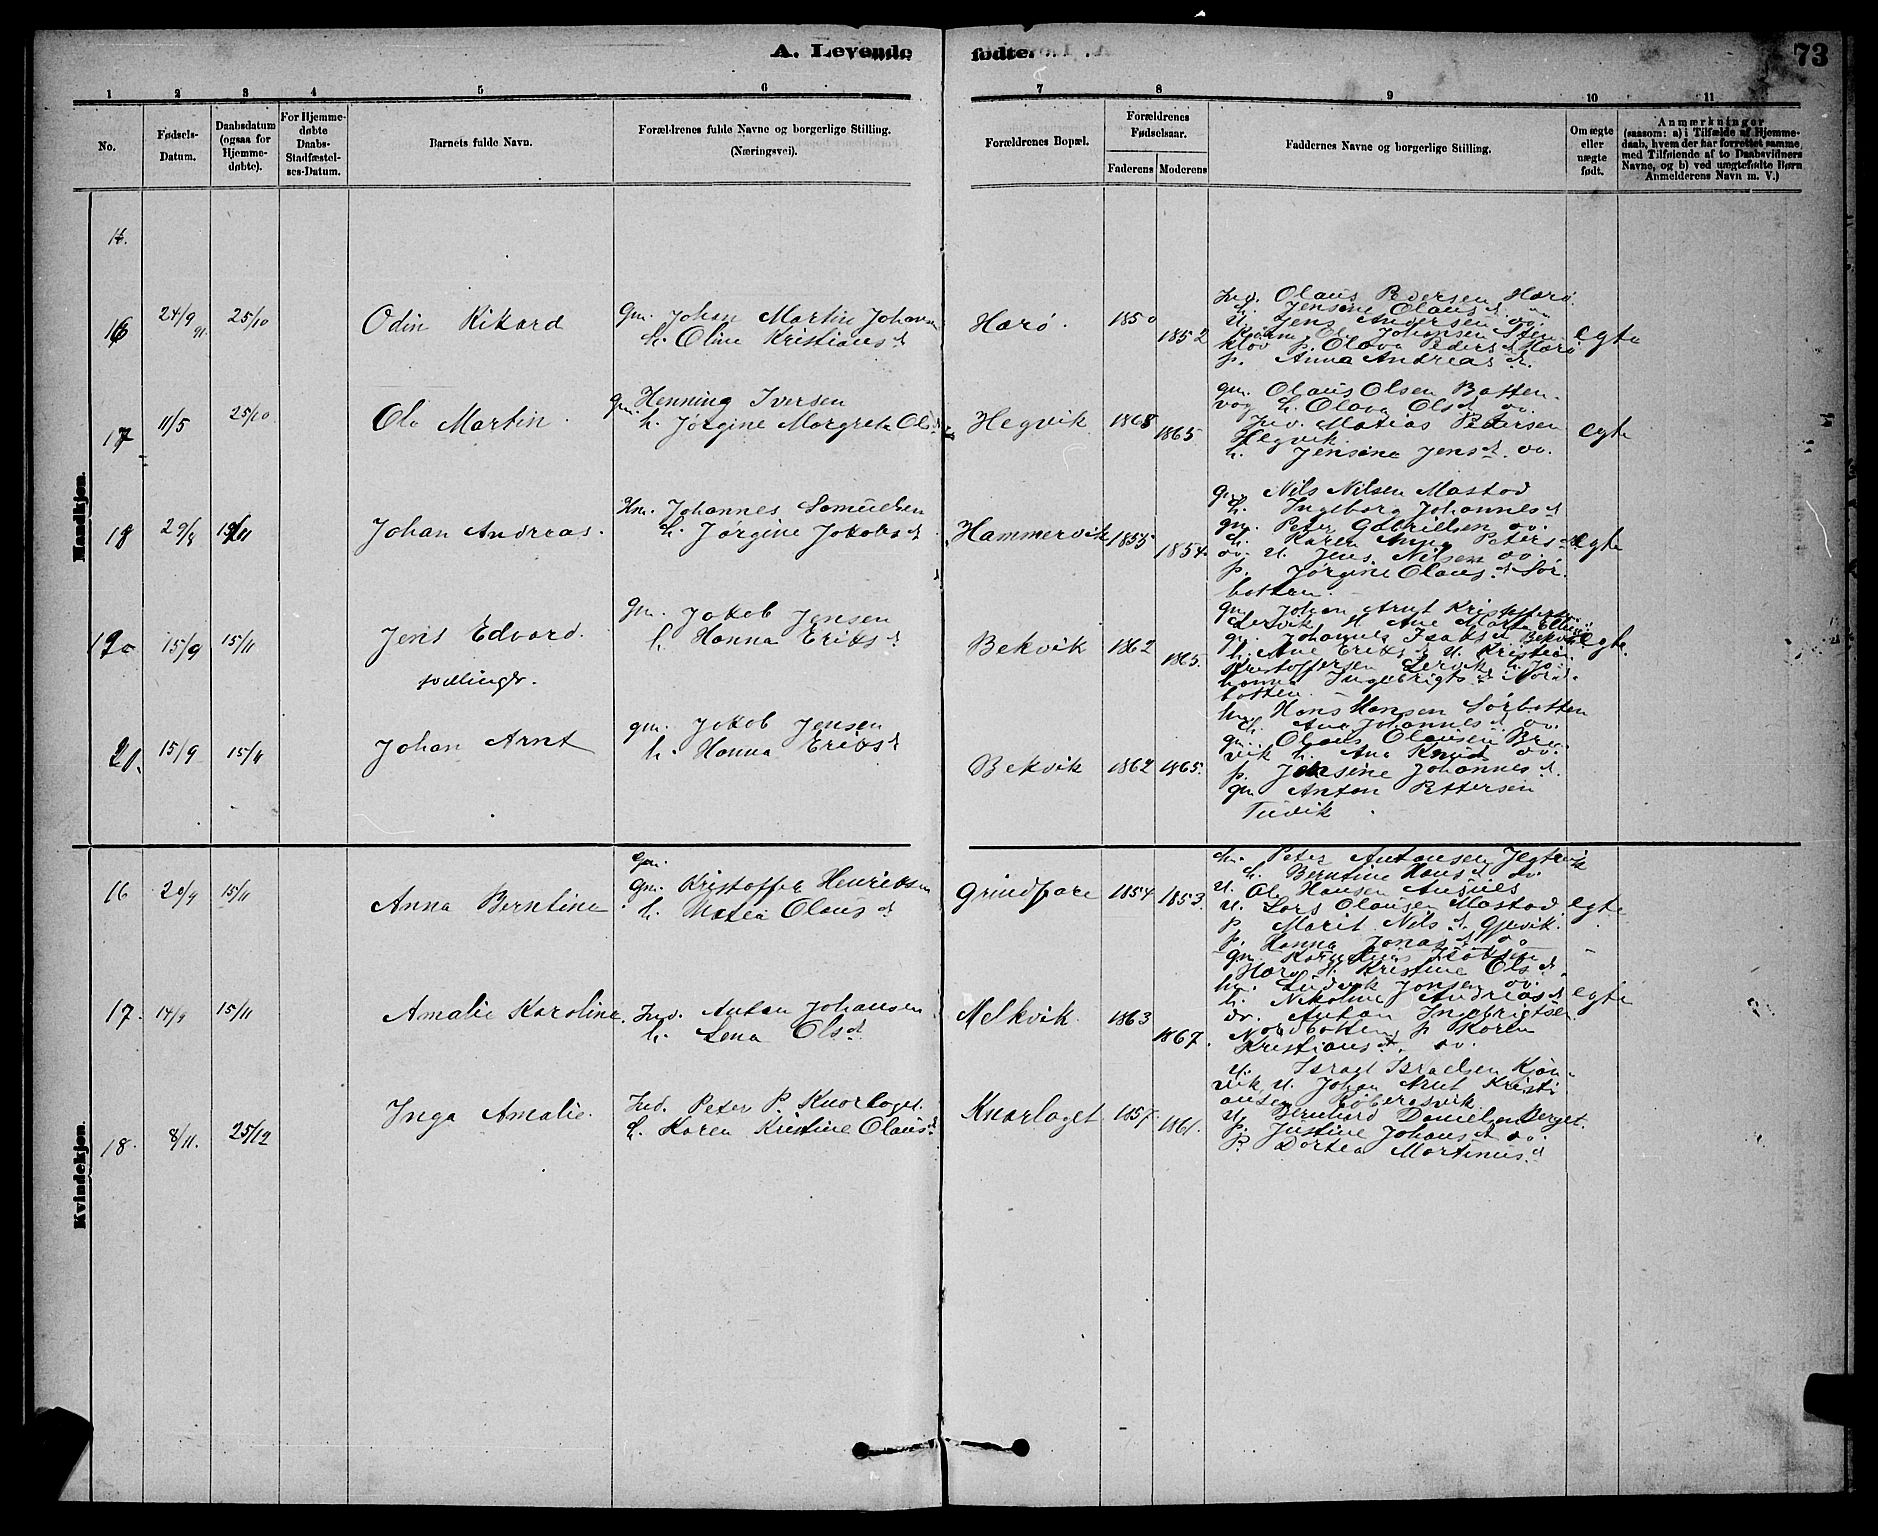 A. Levende fødte. 73
1 2 3 4 5 6 7 8 9 10 11
No.
Fødsels-
Datum.
Daabsdatum
(ogsaa for
Hjemme-
døbte).
For Hjemme-
døbte
Daabs-
Stadfæstel-
ses-Datum.
Barnets fulde Navn.
Forældrenes fulde Navne og borgerlige Stilling.
(Næringsvei).
Forældrenes Bopæl.
Forældrenes
Fødselsaar.
Faderens Moderens
Faddernes Navne og borgerlige Stilling.
Om ægte
eller
uægte
født.
Anmærkninger
(saasom: a) i Tilfælde af Hjemme-
daab, hvem der har forrettet samme,
med Tilføiende af to Daabsvidners
Navne, og b) ved uægtefødte Børn
Anmelderens Navn m. V.)
Mandkjøn.
16 24/9 25/10
Odin Rikard
gm. Johan Martin Johansen
h. Oline Kristiansd
Harø.
1850
1852
Ind. Olaus Pedersen Harø.
h. Jensine Olausd.
u. Jens Andersen oo.
Johansen Sten
klov p. Olava Pedersd Harø
p. Anna Andreasd.
egte
17 11/5 25/10
Ole Martin.
gm. Henning Iversen
h. Jørgine Morgrete Olsd
Hegvik
1868
1865.
gm. Olaus Olsen Botten-
vog h. Olava Olsd oo.
Ind. Matias Petersen
Hegvik
h. Jensine Jensd. oo.
egte
18 29/8 15/11
Johan Andreas.
Hm. Johannes Samuelsen
h. Jørgine Jakobsd
Hammervik
1855
1854.
gm. Nils Nilsen Mastad
h. Ingeborg Johannesd
gm. Peter Gabrielsen oo.
h. Karen Anna Petersd
oo. u. Jens Nilsen oo.
p. Jørgine Olausd Sør-
botten.
egte
19. 15/9 15/11
Jens Edvard.
tvillinger.
gm. Jakob Jensen
h. Hanna Eriksd
Bekvik
1862
1865.
gm. Johan Arnt Kristoffersen
Lervik H. Ane Marta
gm. Johannes Bekvik
h. Ane Eriksd u. Kristian
Kristoffersen Lervik h. Jo-
hanna Ingebrigtsd Nord-
botten.
egte.
20. 15/9 15/11
Johan Arnt
gm. Jakob Jensen
h. Hanna Eriksd
Bekvik
1862 1865.
Hans Hansen Sørbotten
h. Ane Johannesd oo.
gm. Olaus Olausen Bre-
vik h. Ane Knudsd oo.
p. Jensine Johannesd.
gm Anton Pettersen
Tuvik.
Kvindekjøn.
16 20/9 15/11
Anna Berntine
gm.
gm. Kristoffer Henriksen
h. Matea Olausd
Grindfare
1854 1853.
Peter Antonsen Jegtvik
h. Berntine Hansd oo.
u. Ole Hansen
u. Lars Olausen Mastad.
p. Marit Nilsd. Gjevik.
p. Hanna Jonasd oo
egte
17. 14/9 15/11
Amalie Karoline.
Ind. Anton Johansen
h. Lena Olsd.
Melkvik.
1863
1867.
gm. Kornelius
Harø H. Kristine Olsd.
Ludvik Jonsen oo.
h. Nikoline Andreasd
Anton Ingebrigtsen
Nordbotten p Karen
Kristiansd. oo.
egte
18. 8/11. 25/12
Inga Amalie.
Ind. Peter P. Knorlaget.
h. Karen Kristine Olausd
Knarlaget
1857.
1861.
u. Israel Israelsen Kjøn-
vik u. Johan Arnt Kristi
ansen Kobergsvik.
u. Bernhard Danielsen Berget.
p. Justine Johansd oo.
p. Dortea Martinusd